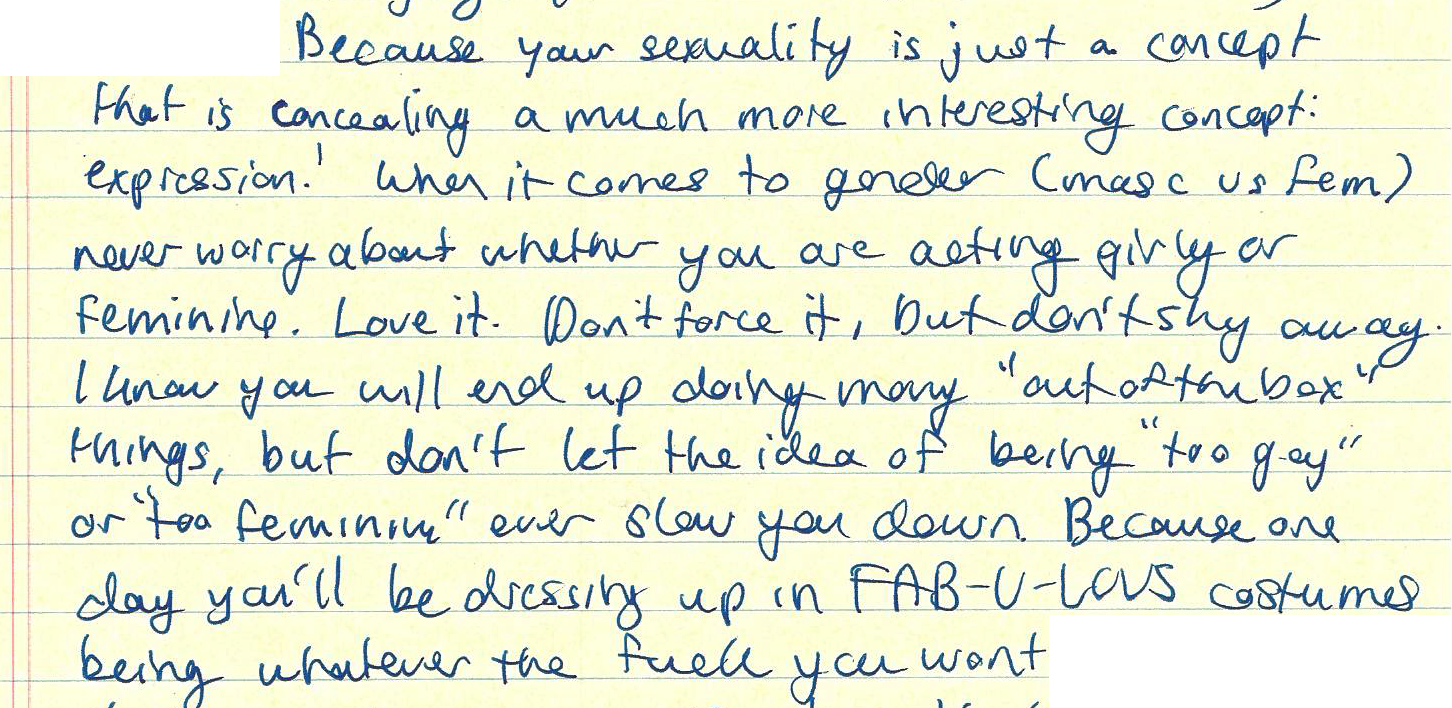 Because your sexuality is just a concept
that is concealing a much more interesting concept:
expression! When it comes to gender (masc vs fem)
never worry about whether you are acting girly or
feminine. Love it. Don't force it, but don't shy away.
I know you will end up doing many "out of the box"
things, but don't let the idea of being "too gay"
or "too feminine" ever slow you down. Because one
day you'll be dressing up in FAB-U-LOUS costumes
being whatever the fuck you want